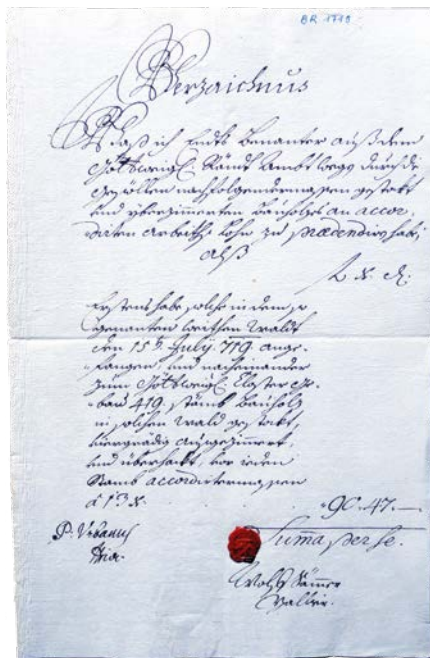 BR 1719
Verzaichnus
Waß ich Endts benanter auß dem
Göttweigl: Ambt wegs durch die
nachfolgendermassen gestekt
und yberzimerten Bauholz an accor-
dirten Arbeiths Lohn zu praedendirn habe,
alß
f. x. d.
Erstens habe solche in dem so
genanten Waldt
den 15t July 719 ange-
fangen, und nacheinander
zum Göttweigl: Closter ge-
bau 419 stämb Bauholz
in solchen Wald gestockt,
ausgezimert,
und überhackt, vor ieden
Stamb accordirtermassen
à 13 x.
90. 47. —
Summa per se.
P. Urbanus
Wolff